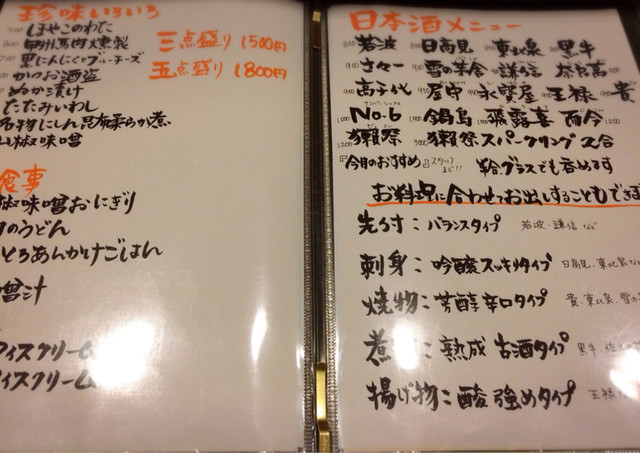 珍味いろいろ
700 ほやこのわた
甲州馬肉燻製
黒にんにくとブルーチーズ
かつお酒盗
ぬか漬け
たたみいわし
名物にしん昆布柔らか煮
山椒味噌
三点盛り 1500円
五点盛り 1800円
食事
椒味噌おにぎり
のうどん
とろあんかけごはん
噌汁
アイスクリーム
アイスクリーム
日本酒メニュー
若波 日高見 東北泉 黒牛
さゝ々 雪の茅舎 謙信
屋守 王禄 貴
No.6 鍋島 飛露喜 而今
獺祭 獺祭スパークリング2合
『今月のおすすめ』スタッフまで!! グラスでも呑めます
お料理に合わせてお出しすることもできま
先付:バランスタイプ 若波・謙信など
刺身:吟醸スッキリタイプ 日高見・東北泉な
焼物:芳醇辛口タイプ 貴、東北泉、雪の
煮:熟成古酒タイプ 黒牛、
揚げ物:酸強めタイプ 王禄な